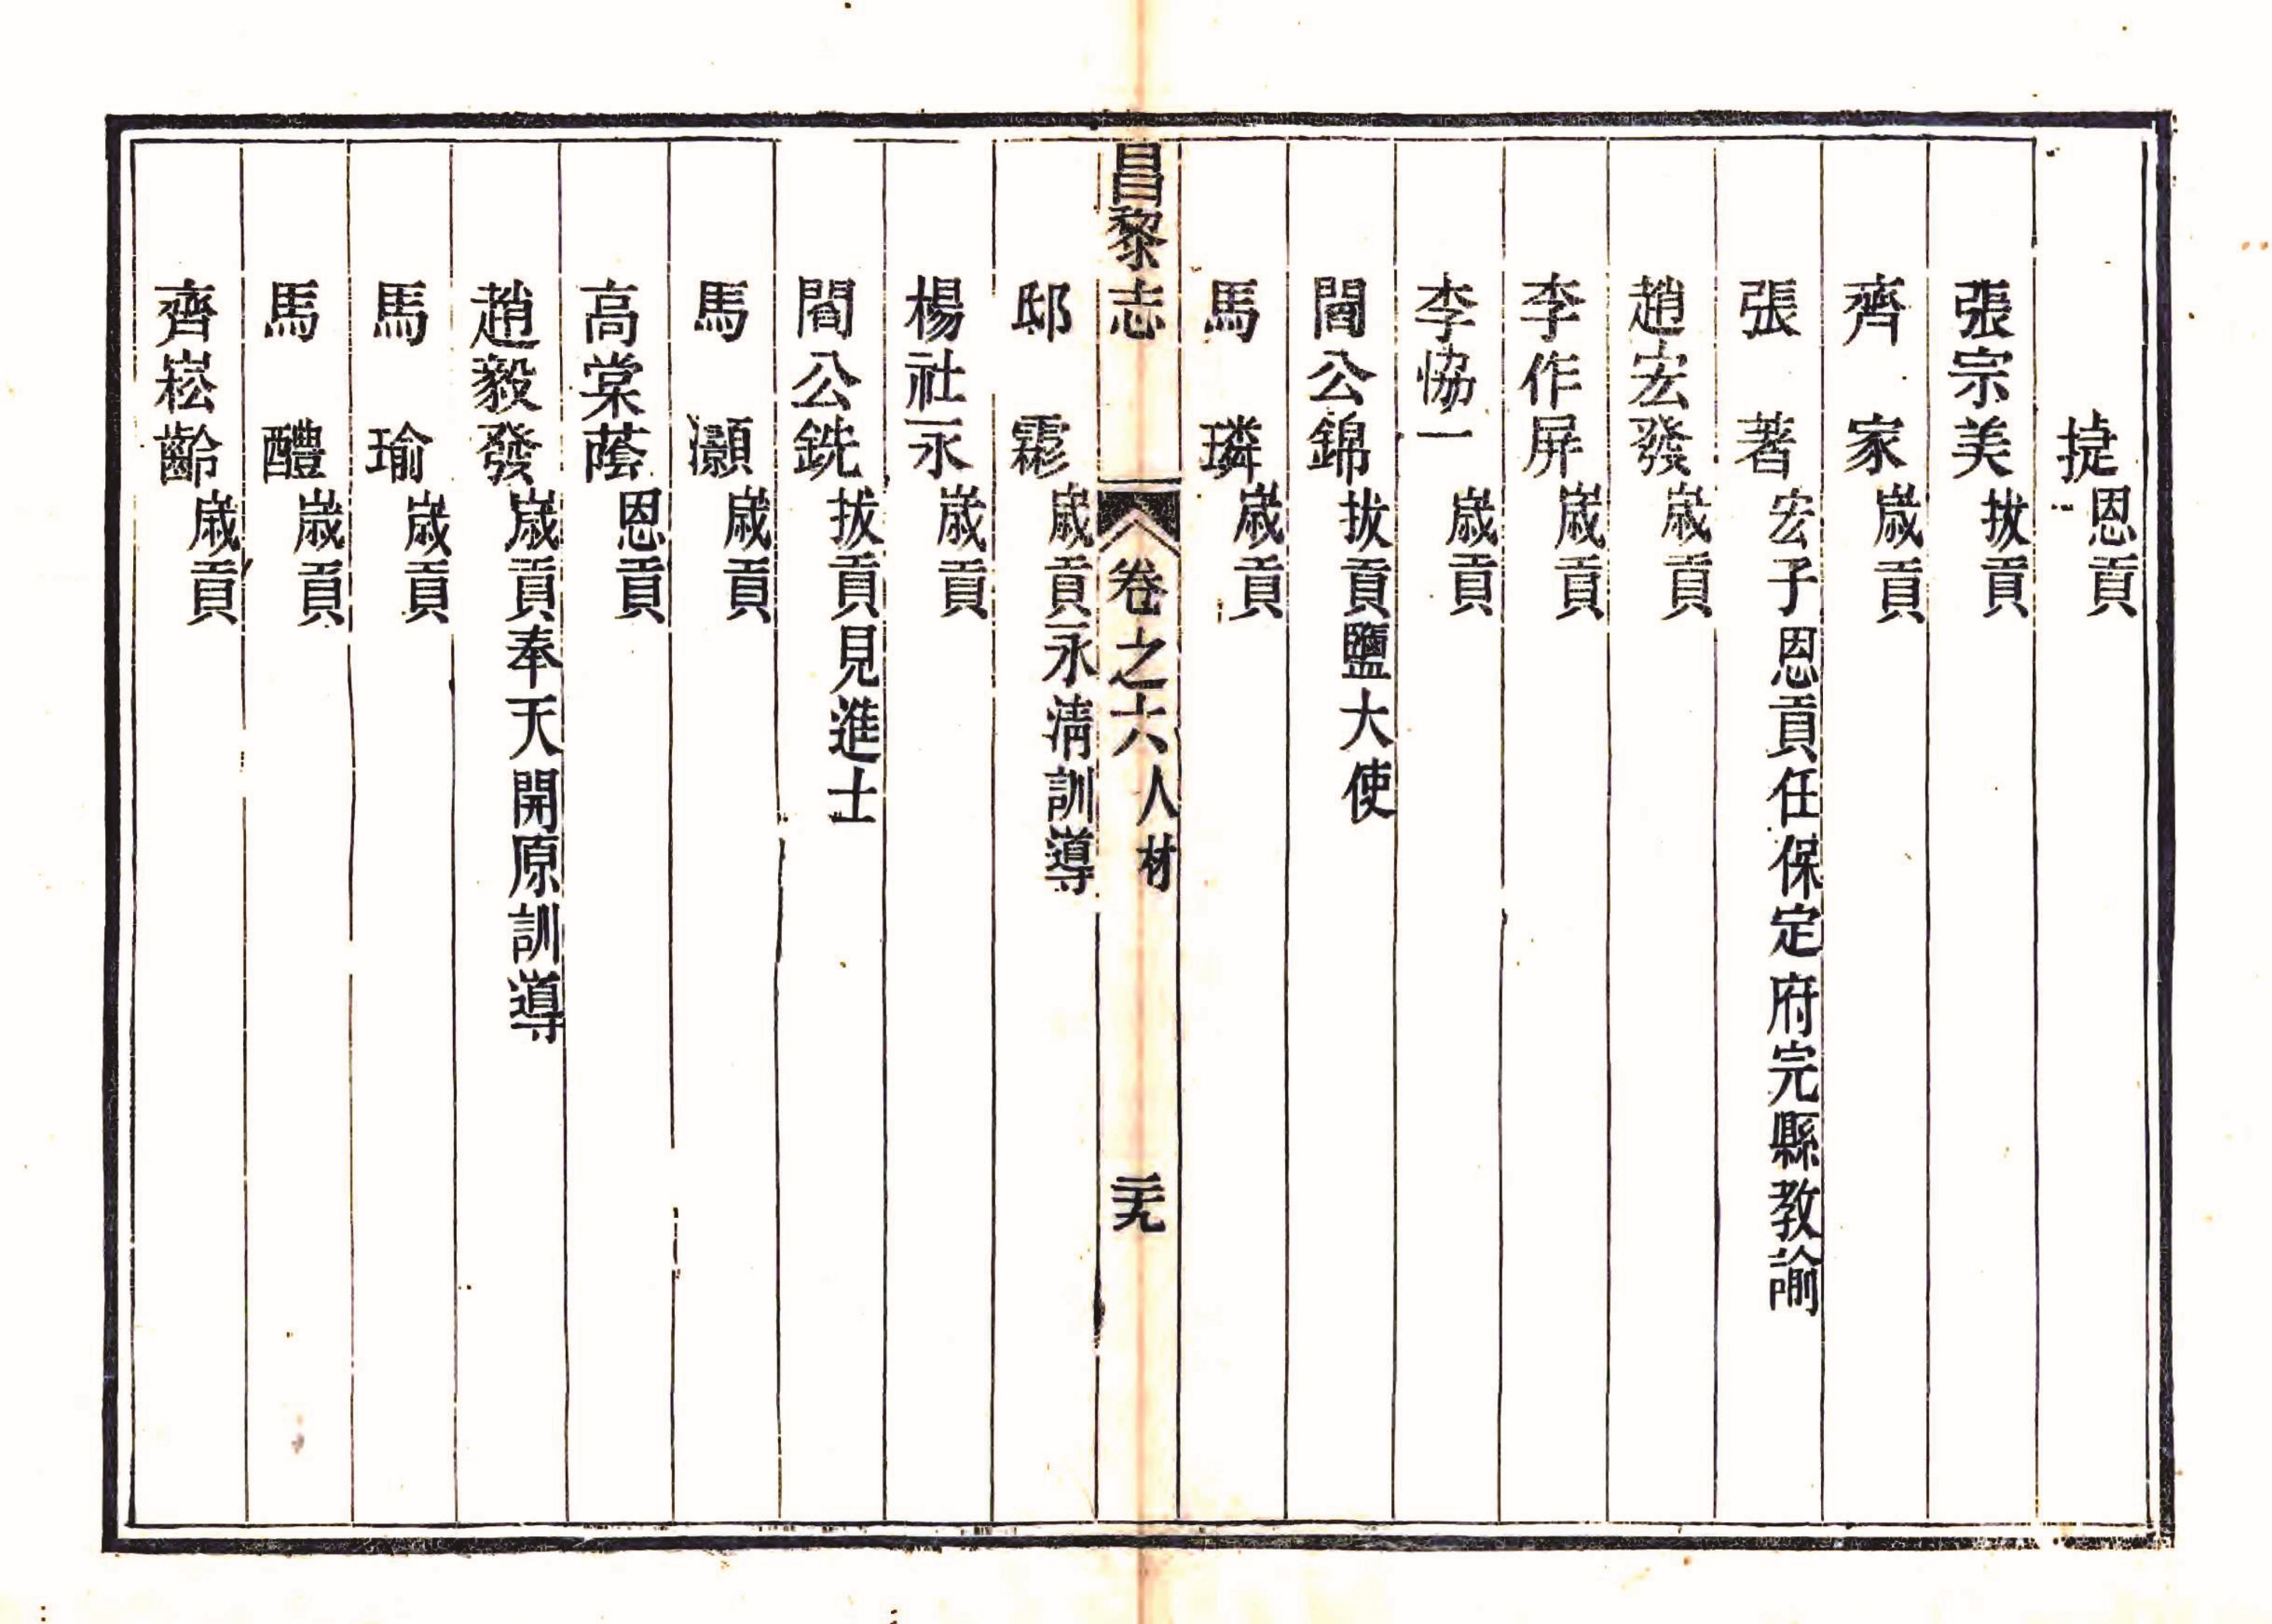 捷恩貢
張宗美拔貢
齊家歲貢
張著宏子恩貢任保定府完縣教諭
趙宏發歲貢
李作屏歲貢
李恊一歲貢
閻公錦拔貢鹽大使
馬璘歲貢
昌黎志 卷之六 人材 二十九
邸霦歲貢永清訓導
楊社永歲貢
閻公銑拔貢見進士
馬灝歲貢
高棠蔭恩貢
趙毅發歲貢奉天開原訓導
馬瑜歲貢
馬醴歲貢
齊崧齡歲貢